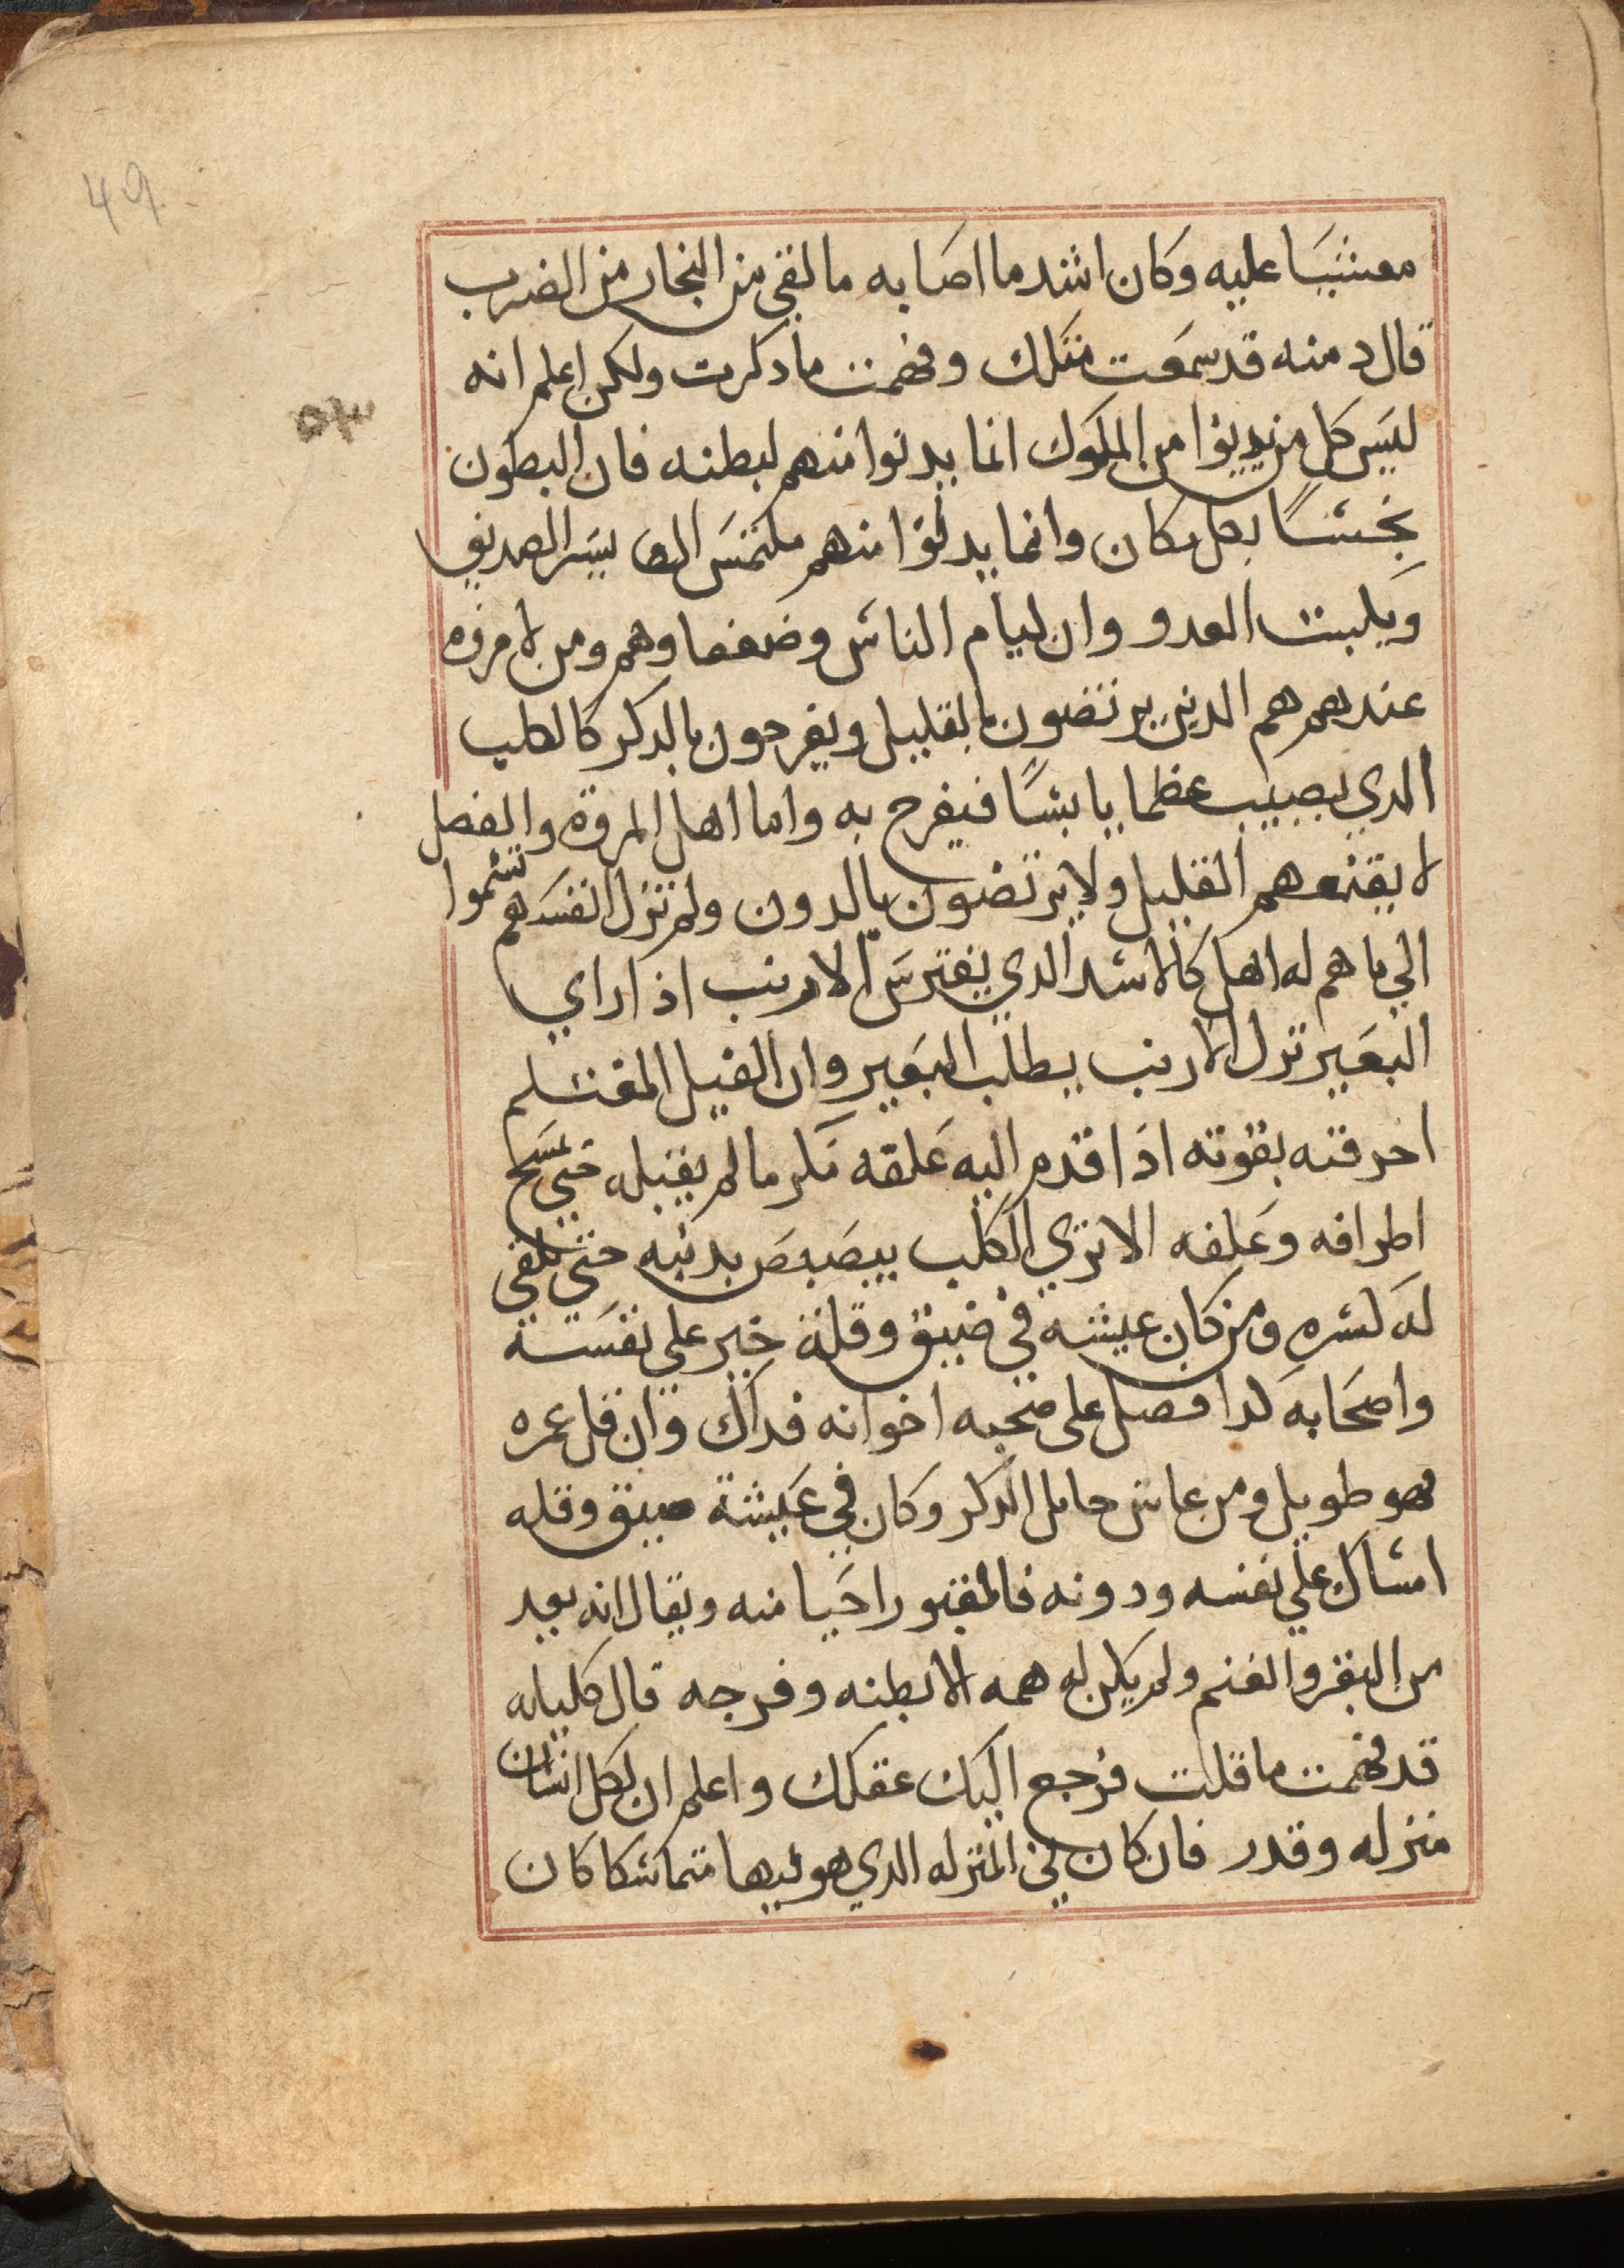 49
مغشيا عليه وكان اشد ما اصابه ما لقي من النجار من الضرب
قال دمنه قد سمعت مثلك وفهمت ما دكرت ولكن اعلم انه
ليس كل من يدنوا من الملوك انما يدنوا منهم لبطنه فان البطون
بكل مكان وانما يدنوا منهم ملتمس ان يسر الصديق
ويكبت العدو وان ليام الناس وضعفاوهم ومن لا مروه
عندهم هم الدين يرتضون بالقليل ويفرحون بالدكر كالكلب
الدي يصيب عظما يابسا فيفرح به واما اهل المروة والفضل
لا يقنعهم القليل ولا يرتضون بالدون ولم تزل انفسهم تسموا
الي ما هم له اهل كالاسد الدي يفترس الارنب اذا راي
البعير ترك الارنب يطلب البعير وان الفيل المغتلم
بقوته اذا قدم اليه علفه مكرما لم يقبله حتي تمسح
اطرافه وعلفه الا تري الكلب يبصبص بدنبه حتي تلقي
له كسره ومن كان عيشه في ضيق وقلة خير علي نفسه
واصحابه على اخوانه فداك وان قل عمره
فهو طويل ومن عاش حامل الدكر وكان في عيشة ضيق وقله
امساك علي نفسه ودونه فالمقبور احيا منه ويقال انه يعد
من البقر والغنم ولم يكن له همه الا بطنه وفرجه قال كليله
قد فهمت ما قلت فرجع اليك عقلك واعلم ان لكل انسان
منزله وقدر فان كان في المنزله الدي هو فيها متماسكا كان